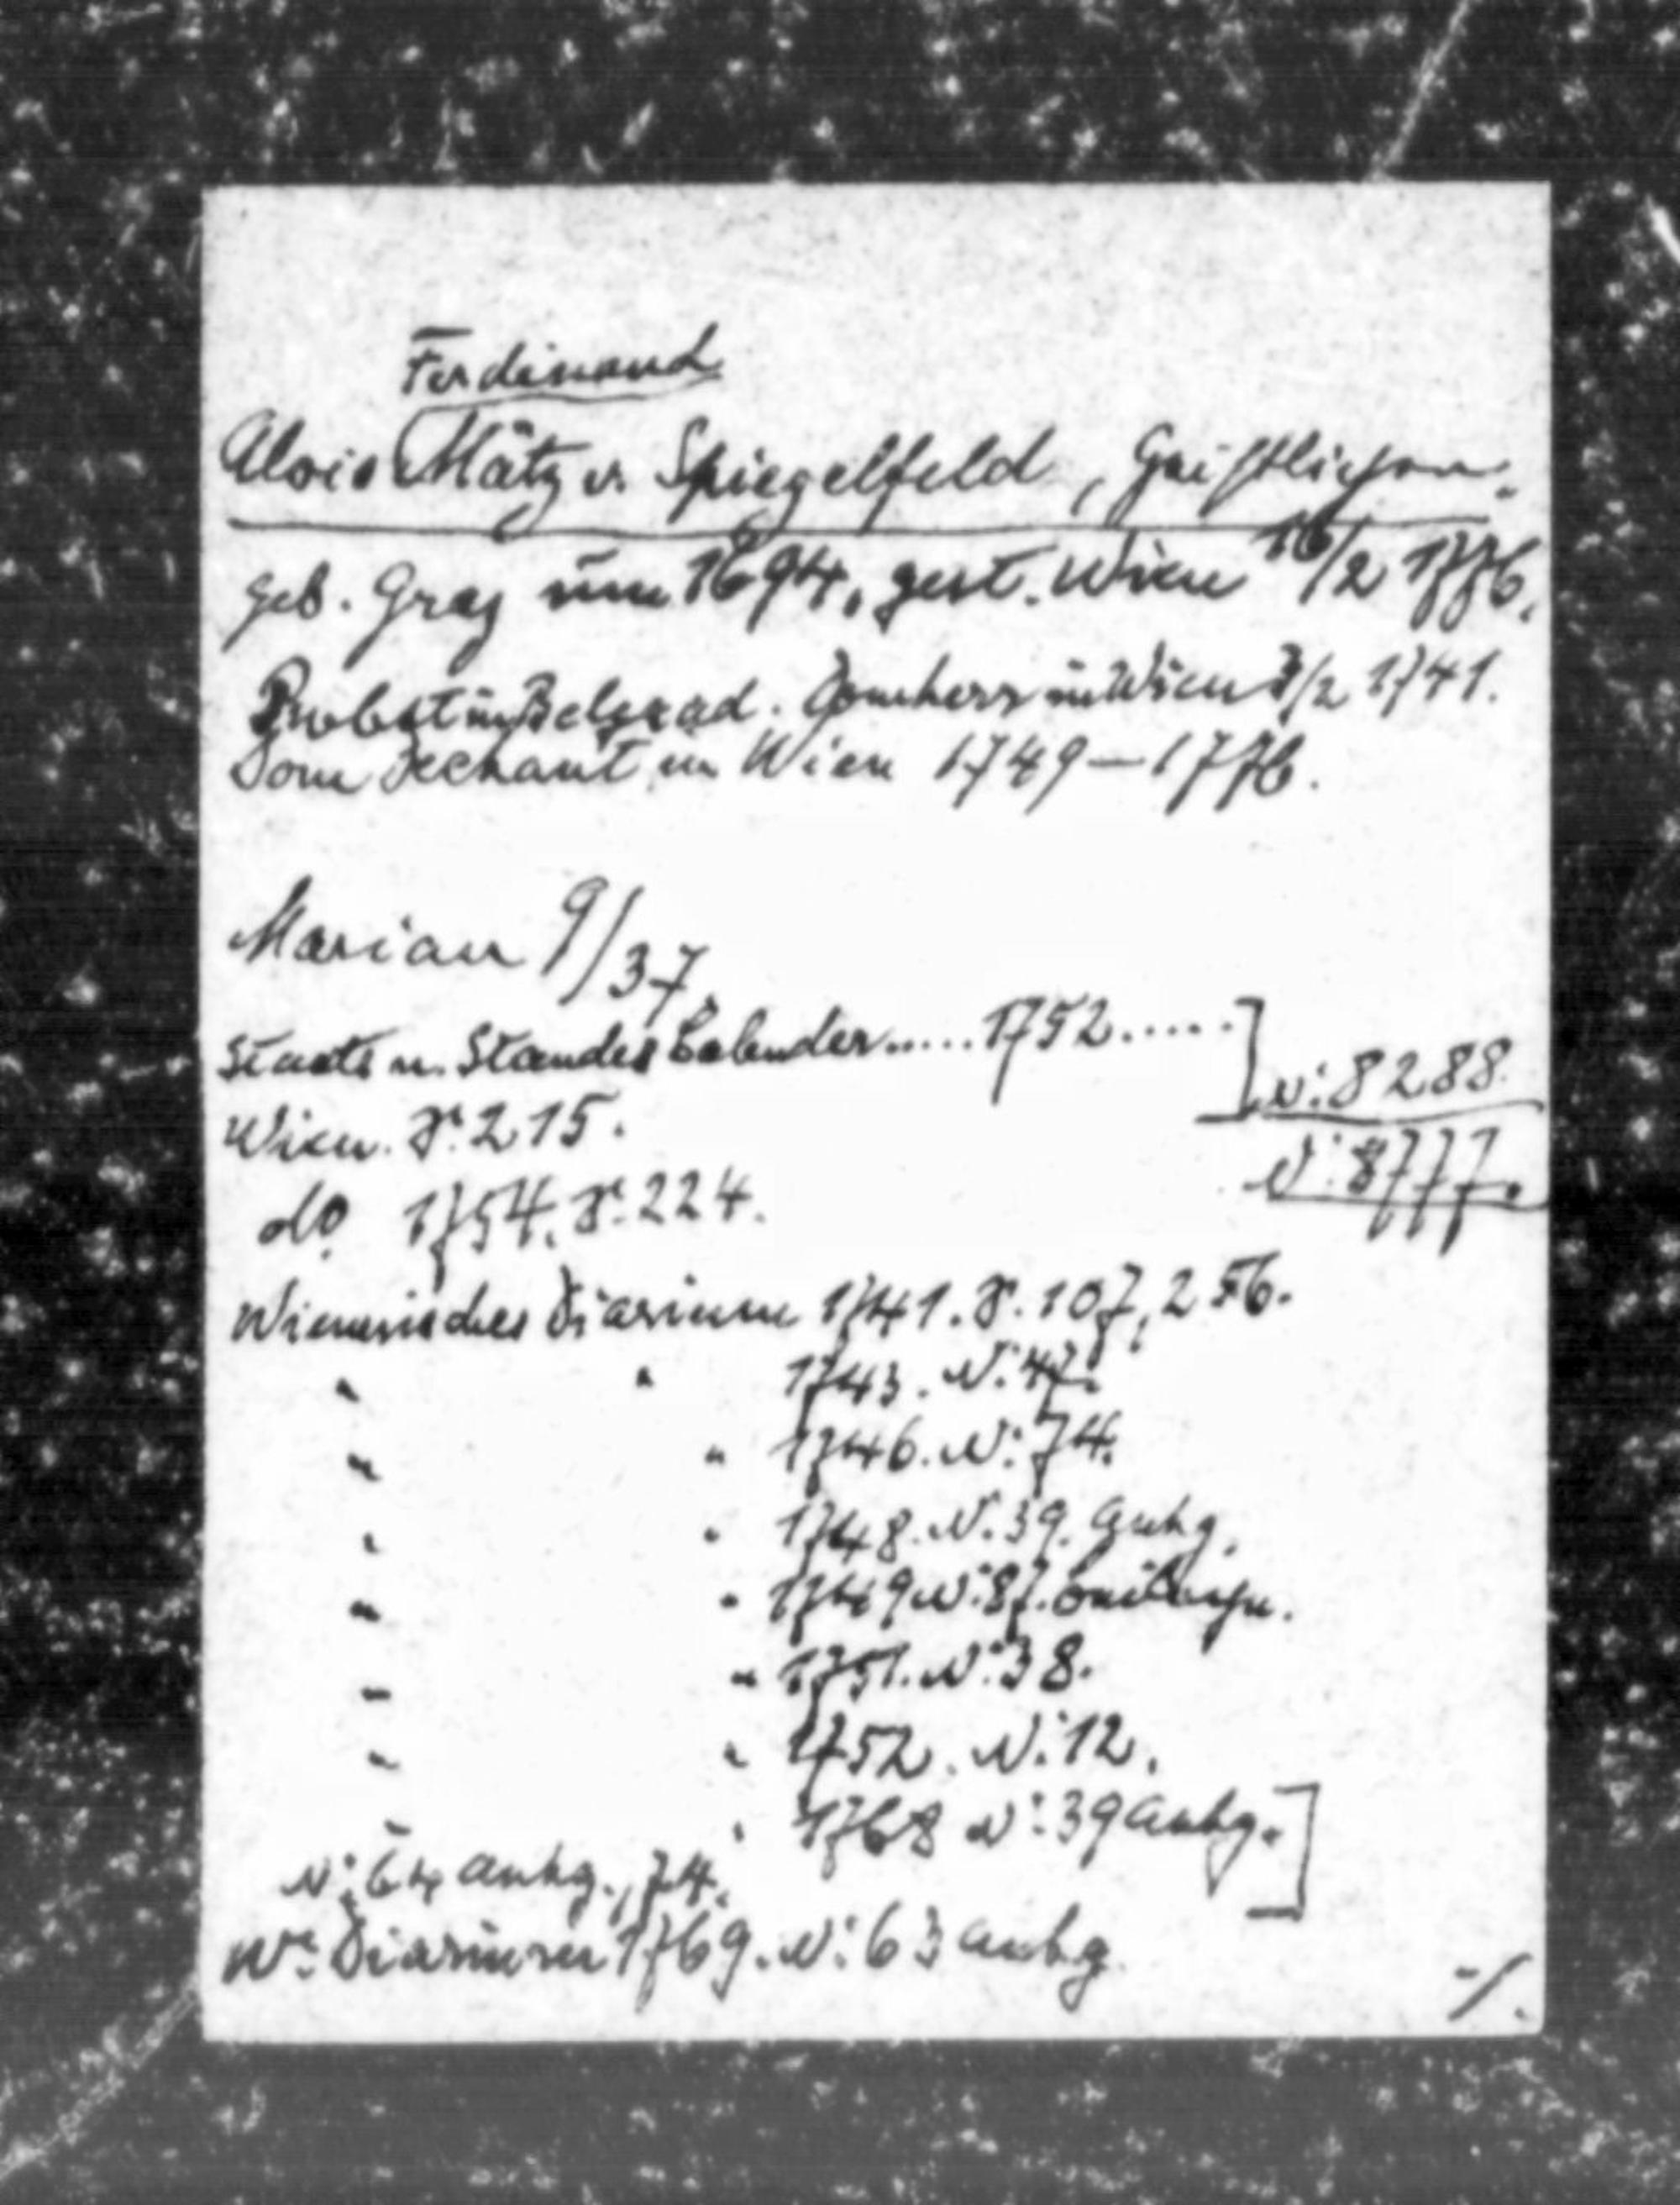 Ferdinand
Alois Mätz v. Spiegelfeld, Geistlicher.
geb. Graz um 1694, gest. Wien 16/2 1776.
Probst in Belgrad. Domherr in Wien 7/2 1741.
Domdechant in Wien 1749—1776.
Marian 9/37.
Staats u. Standes Calender.....1752.....]
Wien. S. 215.
N: 8288.
N: 8777.
do. 1754. S. 224.
Wienerisches Diarium 1741. S. 107, 256.
" " 1743. N: 47.
" " 1746. N: 74.
" " 1748. N: 39. Anhg.
" " 1749 N: 87.
" " 1751. N: 38.
" " 1752. N: 12.
" " 1768 N: 39 Anhg.]
N: 64 Anhg., 74.
Wr. Diarium 1769. N: 63 Anhg.
./.